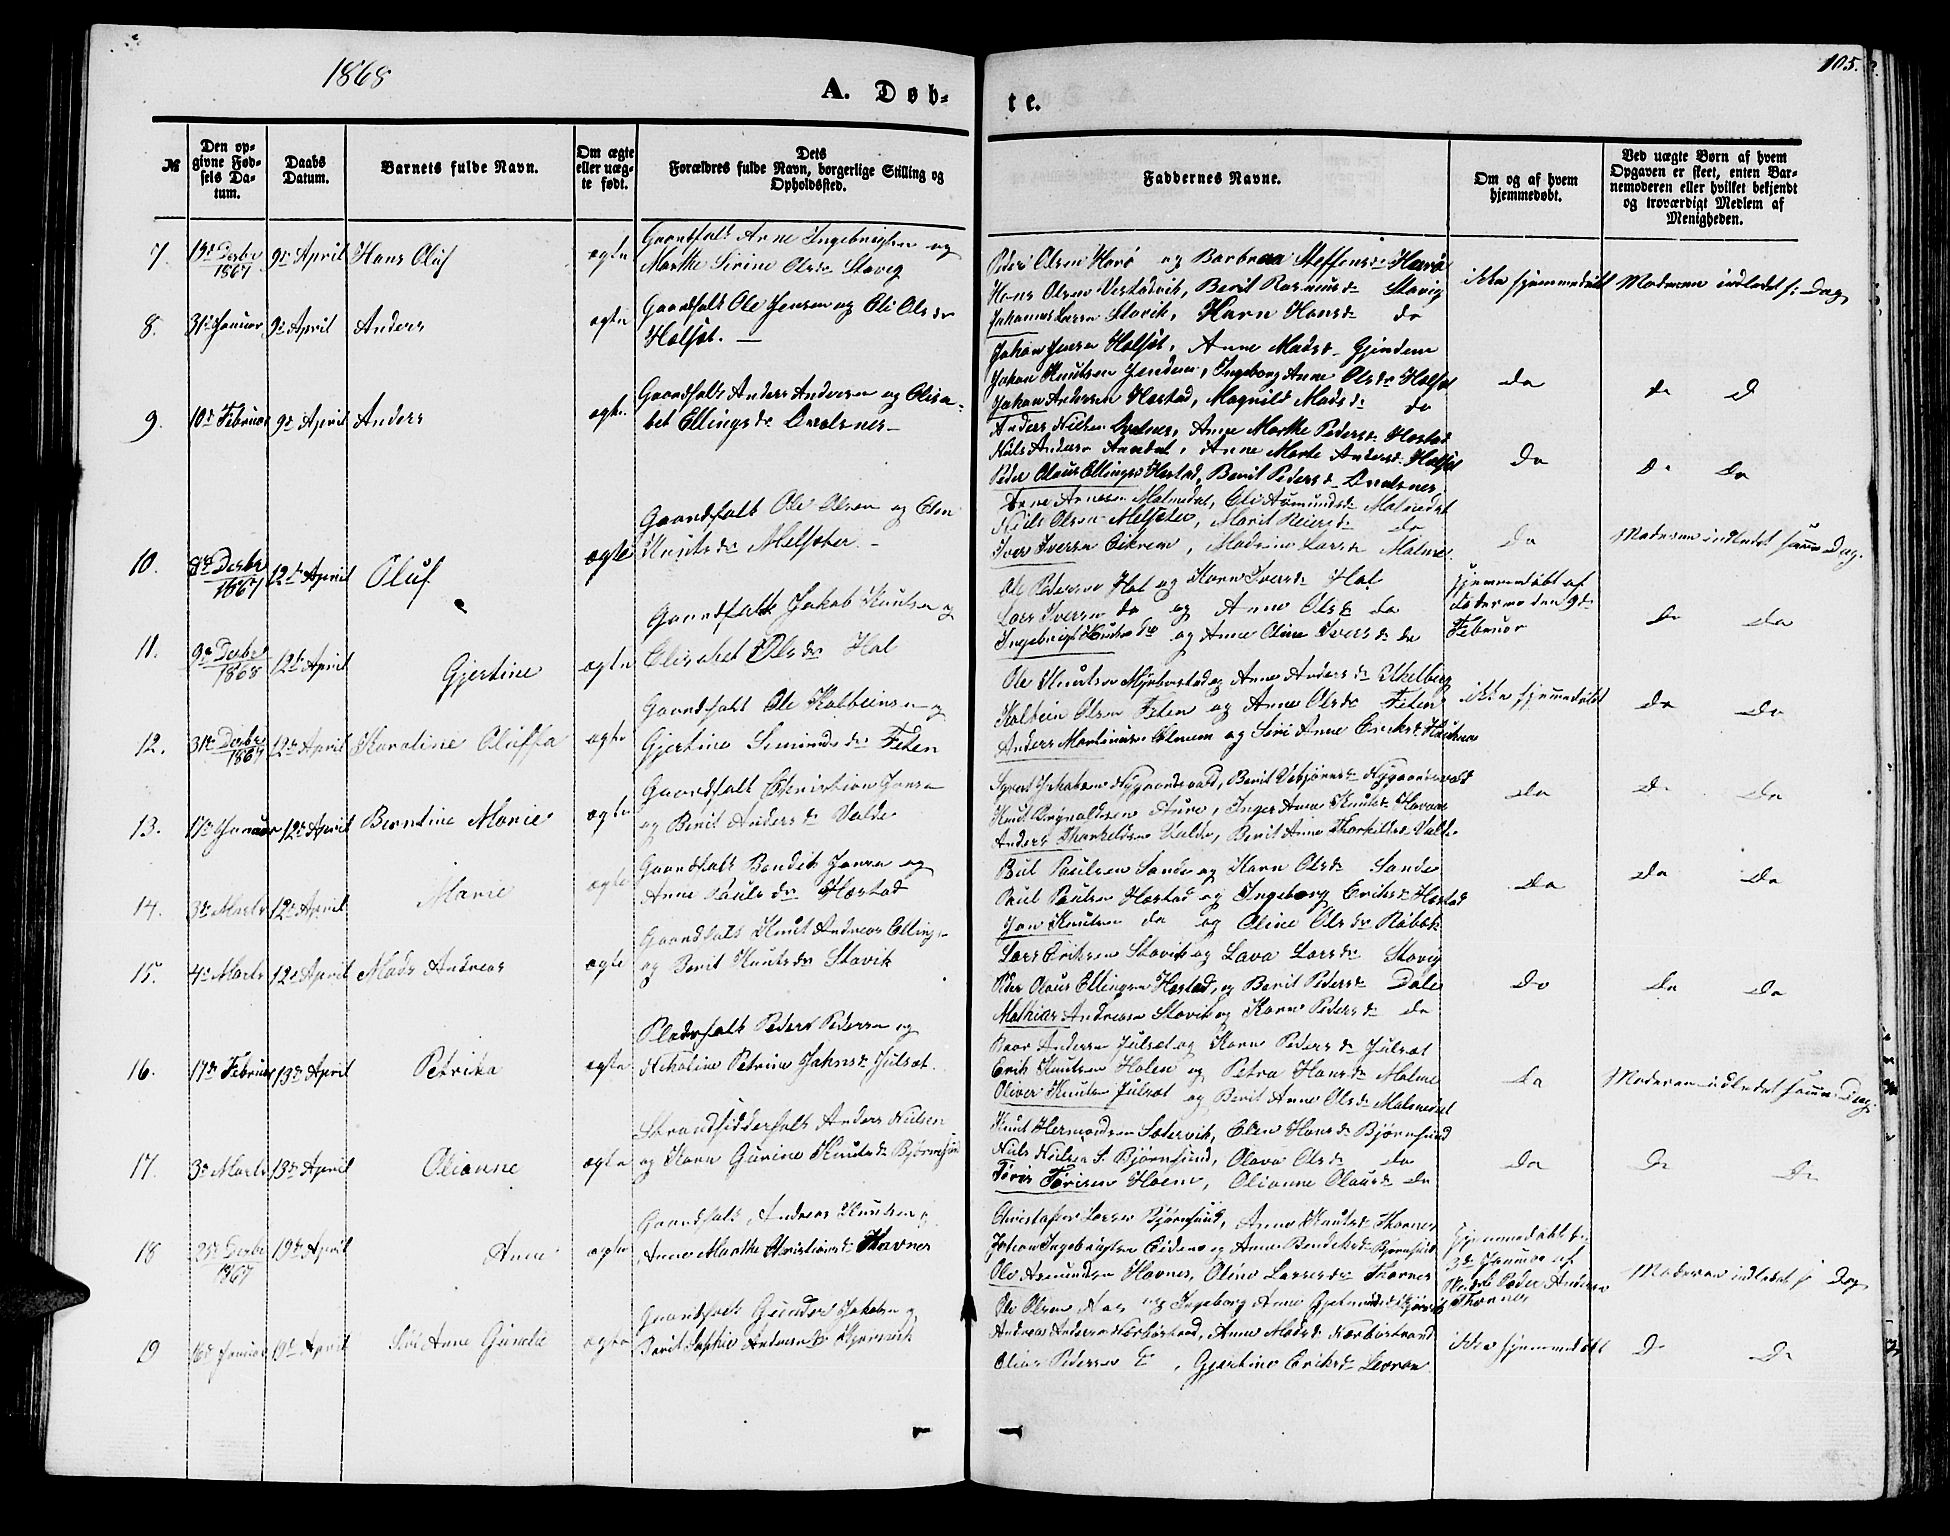 1868
A. Døb-
te.
105.
№
Den op-
givne Fød-
sels Da-
tum.
Daabs
Datum.
Barnets fulde Navn.
Om ægte
eller uæg-
te født.
Dets
Forældres fulde Navn, borgerlige Stilling og
Opholdssted.
Faddernes Navne.
Om og af hvem
hjemmedøbt.
Ved uægte Børn af hvem
Opgaven er skeet, enten Bar-
nemoderen eller hvilket bekjendt
og troværdigt Medlem af
Menigheden.
7. 13de Decbr 1867 9de April Hans Oluf ægte
Gaardfolk Arne Ingebrigtsen og
Marthe Sirine Olsdr Stavig
Peder Olsen Harø og Barbraa Steffensdr Harø
Hans Olsen Vestadvik, Berit Rasmusdr Stavig
Johannes Larsen Stavik, Karn Hansdr do
ikke hjemmedøbt
Moderen indledet s: Dag
8. 31te Januar 9de April Anders ægte
Gaardfolk Ole Jensen og Eli Olsdr
Halsøt. —
Johan Jensen Halsøt, Anne Madsdr Gjendem
Johan Knutsen Jendem, Ingeborg Anne Olsdr Halsøt
Johan Andersen Hostad, Magnild Madsdr do
do
do D
9. 10de Februar 9de April Anders ægte
Gaardfolk Anders Andersen og Elisa-
bet Ellingsdr Dvalsnes
Anders Nielsen Dvalsnes, Anne Marthe Pedersdr Hostad
Niels Andersen Aandal, Anne Marte Andersdr Halsøt
Peder Olaus Ellingsen Hostad, Berit Pedersdr Dvalsnes
do
do do
10. 8de Decbr 1867 12te April Oluf ægte
Gaardfolk Ole Olsen og Elen
Knutsdr Melsæter
Arne Arnesen Malmedal, Eli Aamundsdr Malmedal
Niels Olsen Melsæter, Marit Reiersdr do
Iver Iversen Eikrem, Madrine Larsdr Malme
do
Moderen indledet samme Dag.
11. 9de Decbr 1868 12te April Gjertine ægte
Gaardfolk Jakob Knutsen og
Elisabet Olsdr Hol
Ole Pedersen Hol og Karn Iversdr Hol
Lars Iversen do og Anne Olsdr do
Ingebrigt Knutsen do og Anne Oline Iversdr do
hjemmedøbt af
Faderen den 9de
Februar
do do
12. 31te Decbr 1867 12te April Karoline Oluffa ægte
Gaardfolk Ole Kolbeinsen og
Gjertine Simundsdr Feten
Ole Knutsen Mjelvestad og Anne Andersdr Ikelberg
Kolbein Olsen Feten og Anne Olsdr Feten
Anders Martinusen Elnem og Siri Anne Eriksdr
ikke hjemmedøbt
do do
13. 11te Januar 12te April Berntine Marie ægte
Gaardfolk Christian Jonsen
og Berit Andersdr Valde
Sivert Nygaardsvold, Berit Nygaardsvold
Knut Aure, Inger Anne Knutsdr Havnes
Anders Thorkeldsen Valde, Berit Anne Thorkildsdr Valde
do
do do
14. 3de Marts 12te April Marie ægte
Gaardfolk Bendik Jonsen og
Anne Paulsdr Hostad
Bul Paulsen Sande og Karn Olsdr Sande
Paul Paulsen Hostad og Ingeborg Eriksdr Hostad
Jon Knutsen do og Oline Olsdr Røbek
do
do do
15. 4de Marts 12te April Mads Andreas ægte
Gaardfolk Knut Andreas Ellings.
og Berit Knutsdr Stavik
Lars Eriksen Stavik og Lava Larsdr Stavig
Peder Olaus Ellingsen Hostad, og Berit Pedersdr Dale
Mathias Andreasen Stavik og Karn Pedersdr do
do
do do
16. 17de Februar 13de April Petrika ægte
Pladsfolk Peder Pedersen og
Nikoline Petrine Johnsdr Julsæt
Baar Andersen Julsæt og Karn Pedersdr Julsæt
Erik Knutsen Holen og Petra Hansdr Malme
Oliver Knutsen Julsæt og Berit Anne Olsdr Malmedal
do
Moderen indledet samme Dag
17. 3de Marts 13de April Olianne ægte
Strandsidderfolk Anders Nielsen
og Karn Gurine Knutsdr Bjørnsund
Knut Hermandsen Sætervik, Elen Hansdr Bjørnsund
Niels Nielsen S. Bjørnsund, Olava Olsdr do
Tøris Tørisen Hoem, Olianne Olausdr do
do
do do
18 25de Decbr 1867 19de April Anne ægte
Gaardfolk Andreas Knutsen og
Anne Marthe Christiansdr Thavnes
Christofer Larsen Bjørnsund, Anne Knutsdr Thornes
Johan Ingebrigtsen Eiden og Anne Bendiksdr Bjørnsund
Ole Asmundsen Havnes, Oline Larsdr Thornes
hjemmedøbt den
3de Januar af
Peder Andersen
Thornes
Moderen indledet s Dag
19 16de Januar 19de April Siri Anne Gunelie ægte
Gaardfolk Gunder Jakobsen og
Berit Sophie Andersdr Bjørnvik
Ole Olsen Aas og Ingeborg Anne
Andreas Andersen Nerbøstrand, Anne Madsdr Nerbøstrand
Olias Pedersen do, Gjertine Eriksdr Levran
ikke hjemmedøbt
do do